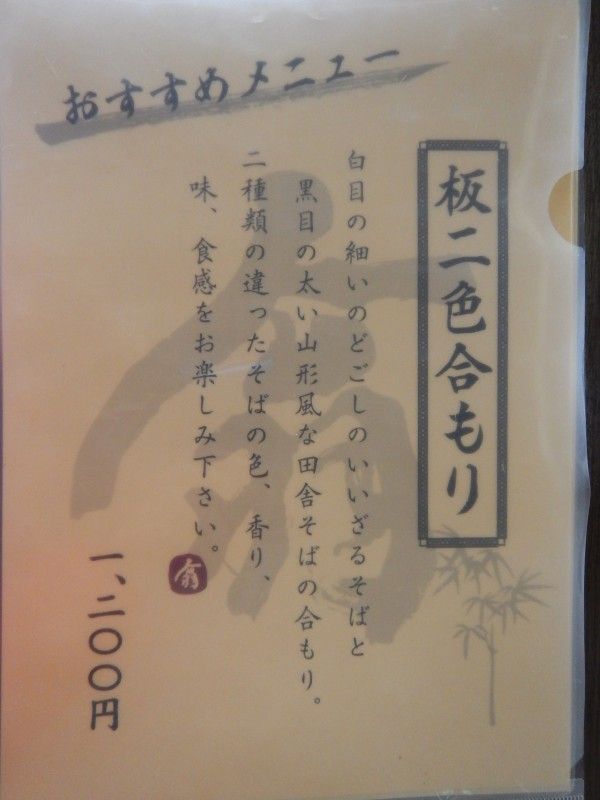 おすすめメニュー
板二色合もり
白目の細いのどごしのいいざるそばと
黒目の太い山形風な田舎そばの合もり。
二種類の違ったそばの色、香り、
味、食感をお楽しみ下さい。
一、二〇〇円